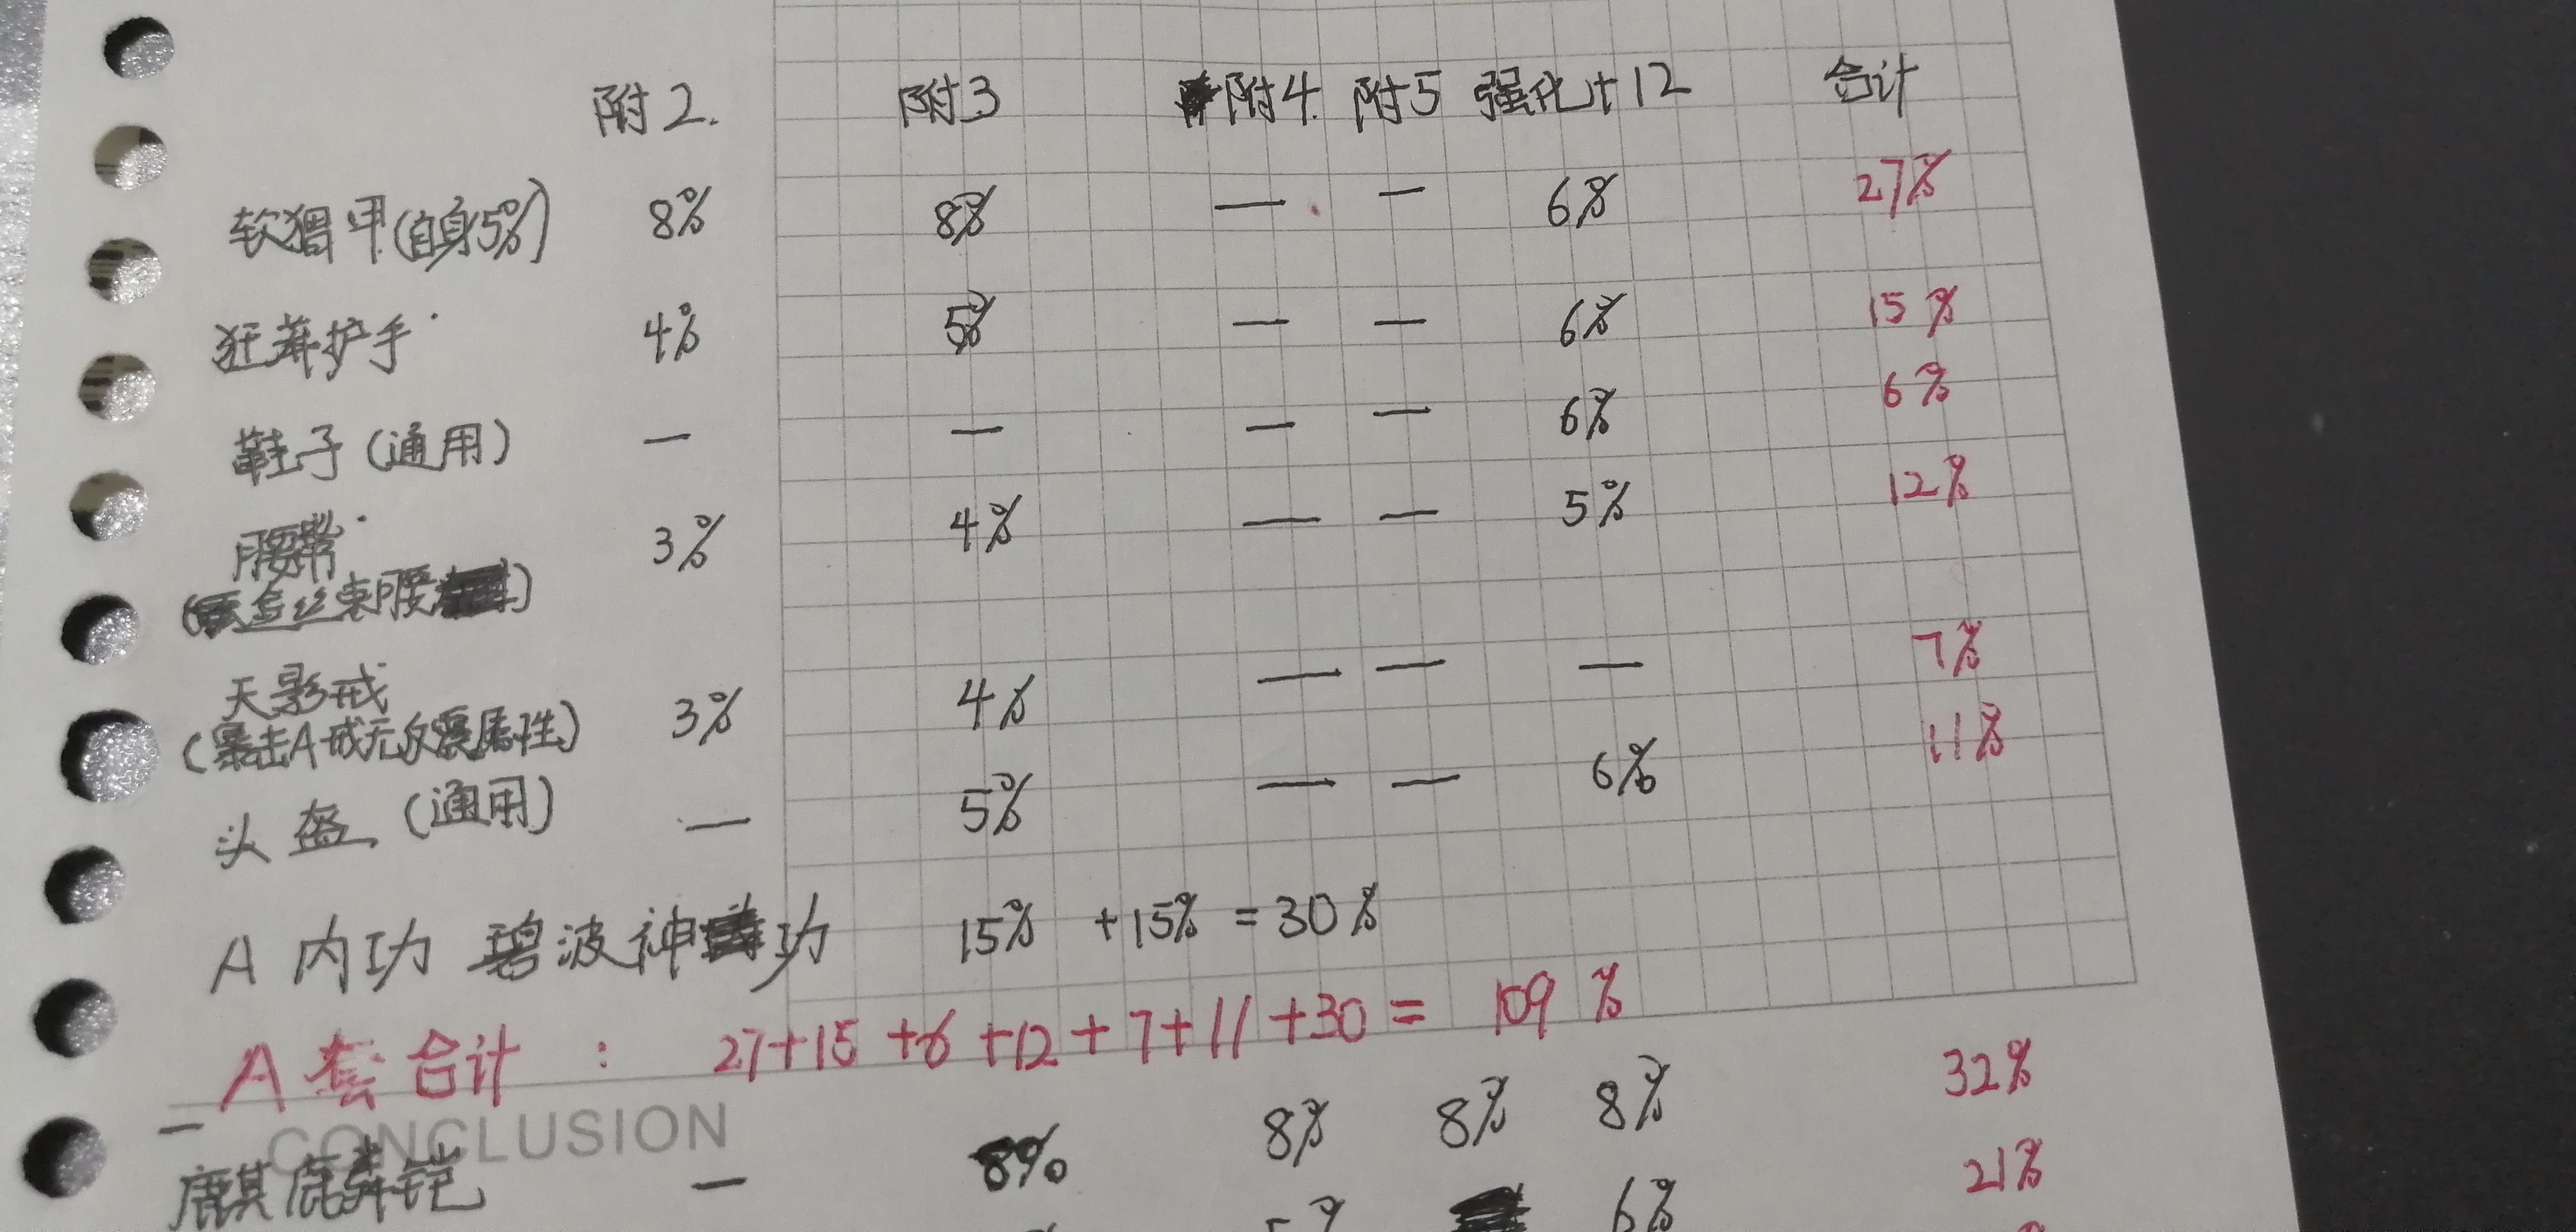 附2. 附3 附4. 附5 强化+12 合计
软猬甲(自身5%) 8% 8% — — 6% 27%
狂莽护手 4% 5% — — 6% 15%
鞋子(通用) — — — — 6% 6%
腰带 3% 4% — — 5% 12%
(金丝束腰)
天影戒 3% 4% — — — 7%
(暴击A戒无反震属性)
头盔(通用) — 5% — — 6% 11%
A内功 碧波神功 15% +15% =30%
A套合计: 27+15+6+12+7+11+30= 109%
CONCLUSION
麒麟铠 — 8% 8% 8% 8% 32%
6% 21%